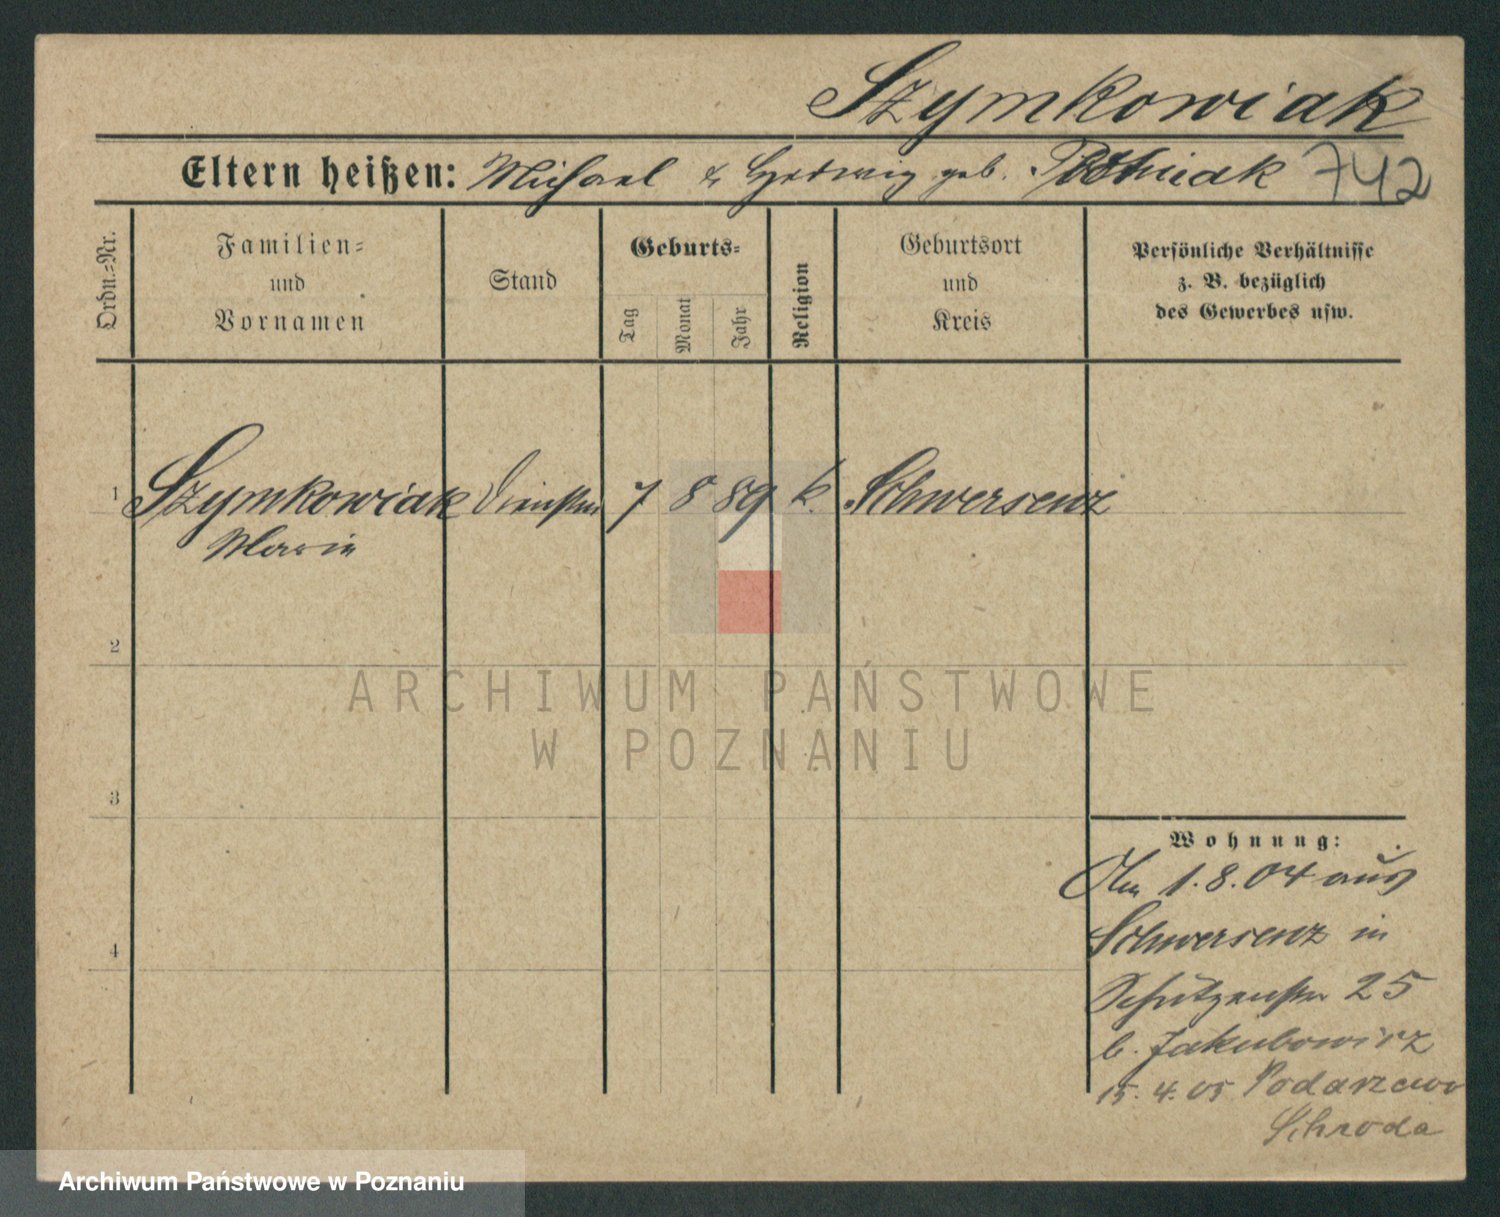 Szymkowiak
Eltern heißen: Michael & Hedwig geb. 742
Ordn.=Nr.
Familien=
und
Vornamen
Stand
Geburts=
Tag
Monat
Jahr
Religion
Geburtsort
und
Kreis
Persönliche Verhältnisse
z. B. bezüglich
des Gewerbes usw.
1 Szymkowiak 7 8 89 k. Schwersenz
Marie
2
3
4
Wohnung:
Am 1.8.04 aus
Schwersenz in
Schützenstr 25
b. Jakubowicz
15.4.05 Podarzewo
Schroda
ARCHIWUM PAŃSTWOWE
W POZNANIU
Archiwum Państwowe w Poznaniu